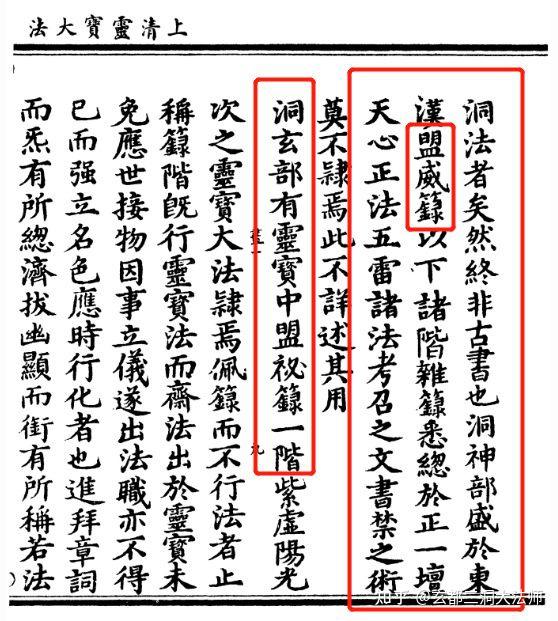 上清靈寶大法
洞法者矣然終非古書也洞神部盛於東
漢盟威籙以下諸階雜籙悉總於正一壇
天心正法五雷諸法考召之文書禁之術
莫不隸焉此不詳述其用
洞玄部有靈寶中盟祕籙一階紫虛陽光
九
次之靈寶大法隸焉佩籙而不行法者止
稱籙階既行靈寶法而齋法出於靈寶未
免應世接物因事立儀遂出法職亦不得
已而强立名色應時行化者也進拜章詞
而炁有所總濟拔幽顯而銜有所稱若法
知乎 @玄都三洞大法师